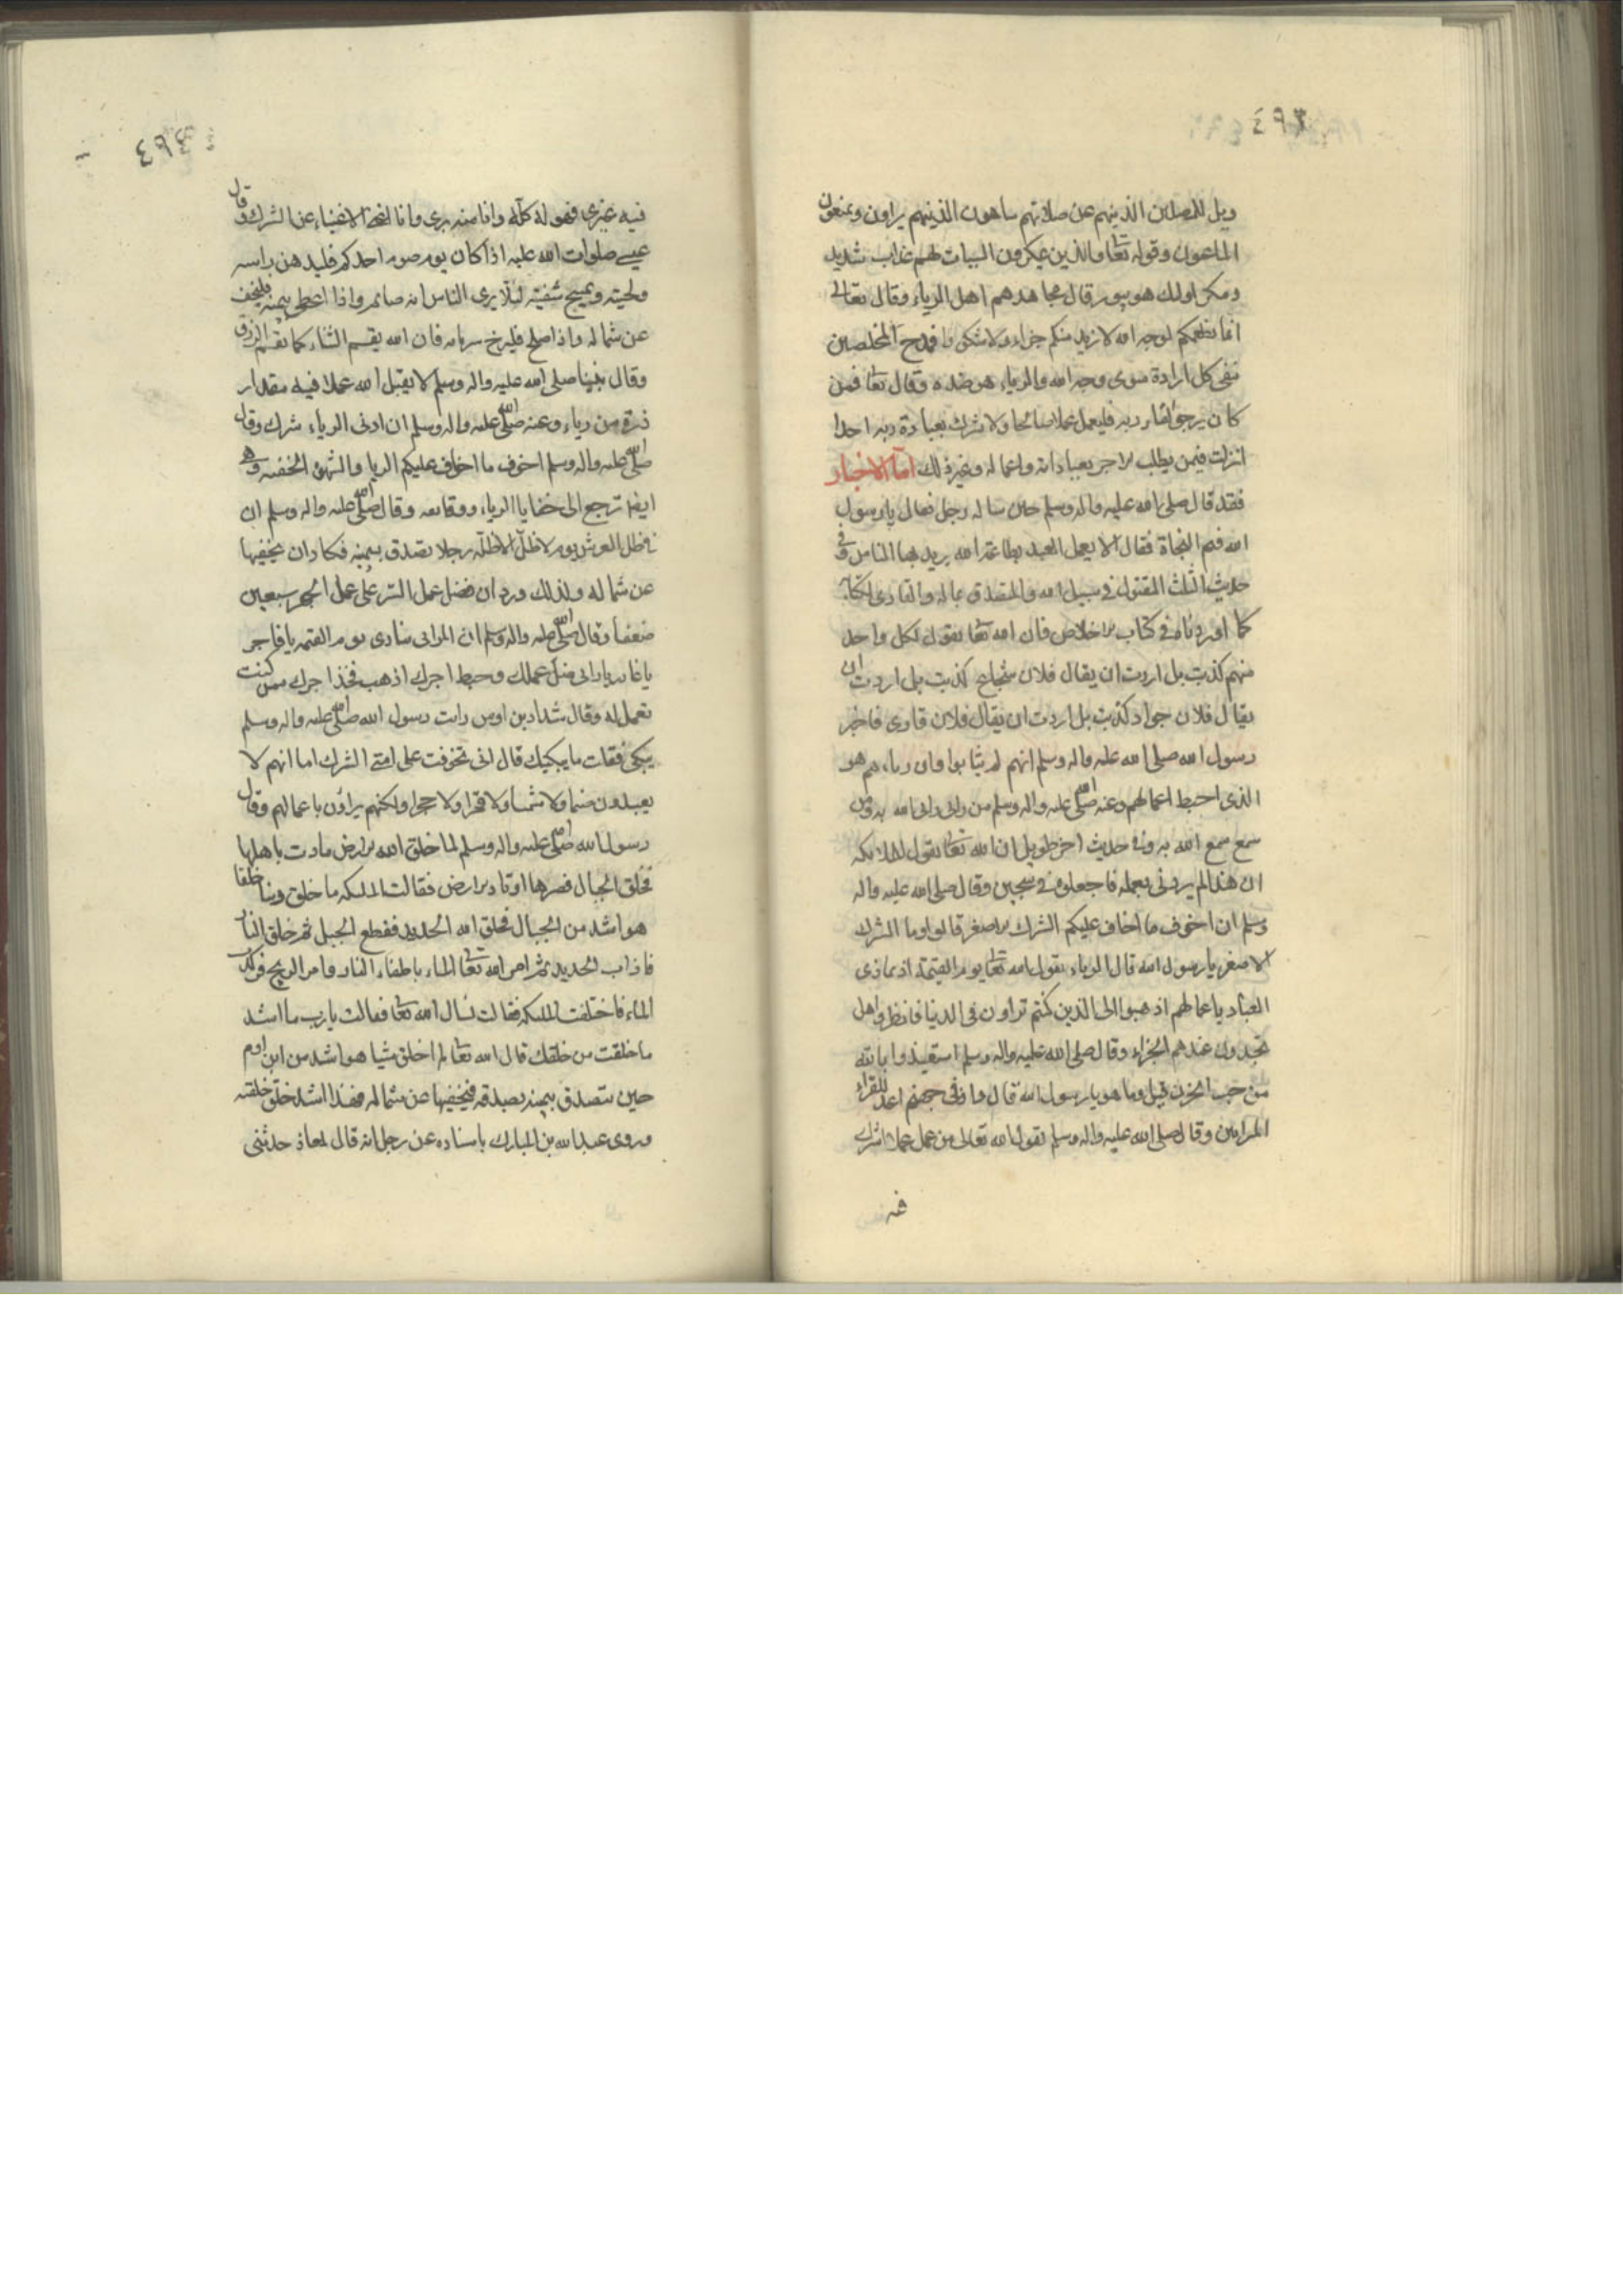 ٤٩٣
ويل للمصلين الذينهم عن صلاتهم ساهون الذينهم يراون ويمنعون
الماعون وقوله تعا والذين يمكرون السيات لهم عذاب شديد
ومكر اولئك هو يبور قال مجاهد هم اهل الرياء وقال تعالى
انما نطعمكم لوجه الله لا نريد منكم جزاء ولا شكورا فمدح المخلصين
بنفى كل ارادة سوى وجه الله والرياء هو ضده وقال تعا فمن
كان يرجو لقاء ربه فليعمل عملا صالحا ولا يشرك بعبادة ربه احدا
انزلت فيمن يطلب الاجر بعباداته واعماله وغير ذلك اما الاخبار
فقد قال صلى الله عليه واله وسلم حين ساله رجل فقال يا رسول
الله فيم النجاة فقال الا يعمل العبد بطاعة الله يريد بها الناس وفى
حديث الثلث المقتول فى سبيل الله والمتصدق بماله والقارى لكتابه
كما اوردناه فى كتاب الاخلاص فان الله تعا يقول لكل واحد
منهم كذبت بل اردت ان يقال فلان شجاع كذبت بل اردت ان
يقال فلان جواد كذبت بل اردت ان يقال فلان قارى فاخبر
رسول الله صلى الله عليه واله وسلم انهم لم يثابوا وان رياءهم هو
الذى احبط اعمالهم وعنه صلى الله عليه واله وسلم من راى راى الله به ومن
سمع سمع الله به وفى حديث اخر طويل ان الله تعا يقول لملائكته
ان هذا لم يردنى بعمله فاجعلوه فى سجين وقال صلى الله عليه واله
وسلم ان اخوف ما اخاف عليكم الشرك الاصغر قالوا وما الشرك
الاصغر يا رسول الله قال الرياء يقول الله تعا يوم القيمة اذا جازى
العباد باعمالهم اذهبوا الى الذين كنتم تراون فى الدنيا فانظروا هل
تجدون عندهم الجزاء وقال صلى الله عليه واله وسلم استعيذوا بالله
من جب الحزن قيل وما هو يا رسول الله قال واد فى جهنم اعد للقراء
المرائين وقال صلى الله عليه واله وسلم يقول الله تعالى من عمل عملا اشرك
فيه
٤٩٤
فيه غيرى فهو له كله وانا منه برى وانا اغنى الاغنياء عن الشرك وقال
عيسى صلوات الله عليه اذا كان يوم صوم احدكم فليدهن راسه
ولحيته ويمسح شفتيه ليلا يرى الناس انه صائم واذا اعطى بيمينه فليخف
عن شماله واذا صلى فليرخ ستر بابه فان الله يقسم الثناء كما يقسم الرزق
وقال نبينا صلى الله عليه واله وسلم لا يقبل الله عملا فيه مقدار
ذرة من رياء وعنه صلى الله عليه واله وسلم ان ادنى الرياء شرك وقال
صلى الله عليه واله وسلم اخوف ما اخاف عليكم الريا والشهوة الخفية وهى
ايضا ترجع الى خفايا الرياء ودقائقه وقال صلى الله عليه واله وسلم ان
فى ظل العرش يوم لا ظل الا ظله رجلا تصدق بيمينه فكاد ان يخفيها
عن شماله ولذلك ورد ان فضل عمل السر على عمل الجهر سبعين
ضعفا وقال صلى الله عليه واله وسلم ان المرائى ينادى يوم القيمة يا فاجر
يا غادر يا مرائى ضل عملك وحبط اجرك اذهب فخذ اجرك ممن كنت
تعمل له وقال شداد بن اوس رايت رسول الله صلى الله عليه واله وسلم
يبكى فقلت ما يبكيك قال انى تخوفت على امتى الشرك اما انهم لا
يعبدون صنما ولا شمسا ولا قمرا ولا حجرا ولكنهم يراؤن باعمالهم وقال
رسول الله صلى الله عليه واله وسلم لما خلق الله الارض مادت باهلها
فخلق الجبال فصيرها اوتاد الارض فقالت الملئكة ما خلق ربنا خلقا
هو اشد من الجبال فخلق الله الحديد فقطع الجبل ثم خلق النار
فاذاب الحديد ثم امر الله تعا الماء باطفاء النار وامر الريح فكدرت
الماء فاختلفت الملئكة فقالت نسال الله تعا فقالت يا رب ما اشد
ما خلقت من خلقك قال الله تعا لم اخلق شيا هو اشد من ابن ادم
حين يتصدق بيمينه بصدقة فيخفيها عن شماله فهذا اشد خلق خلقته
وروى عبد الله بن المبارك باسناده عن رجل انه قال لمعاذ حدثنى